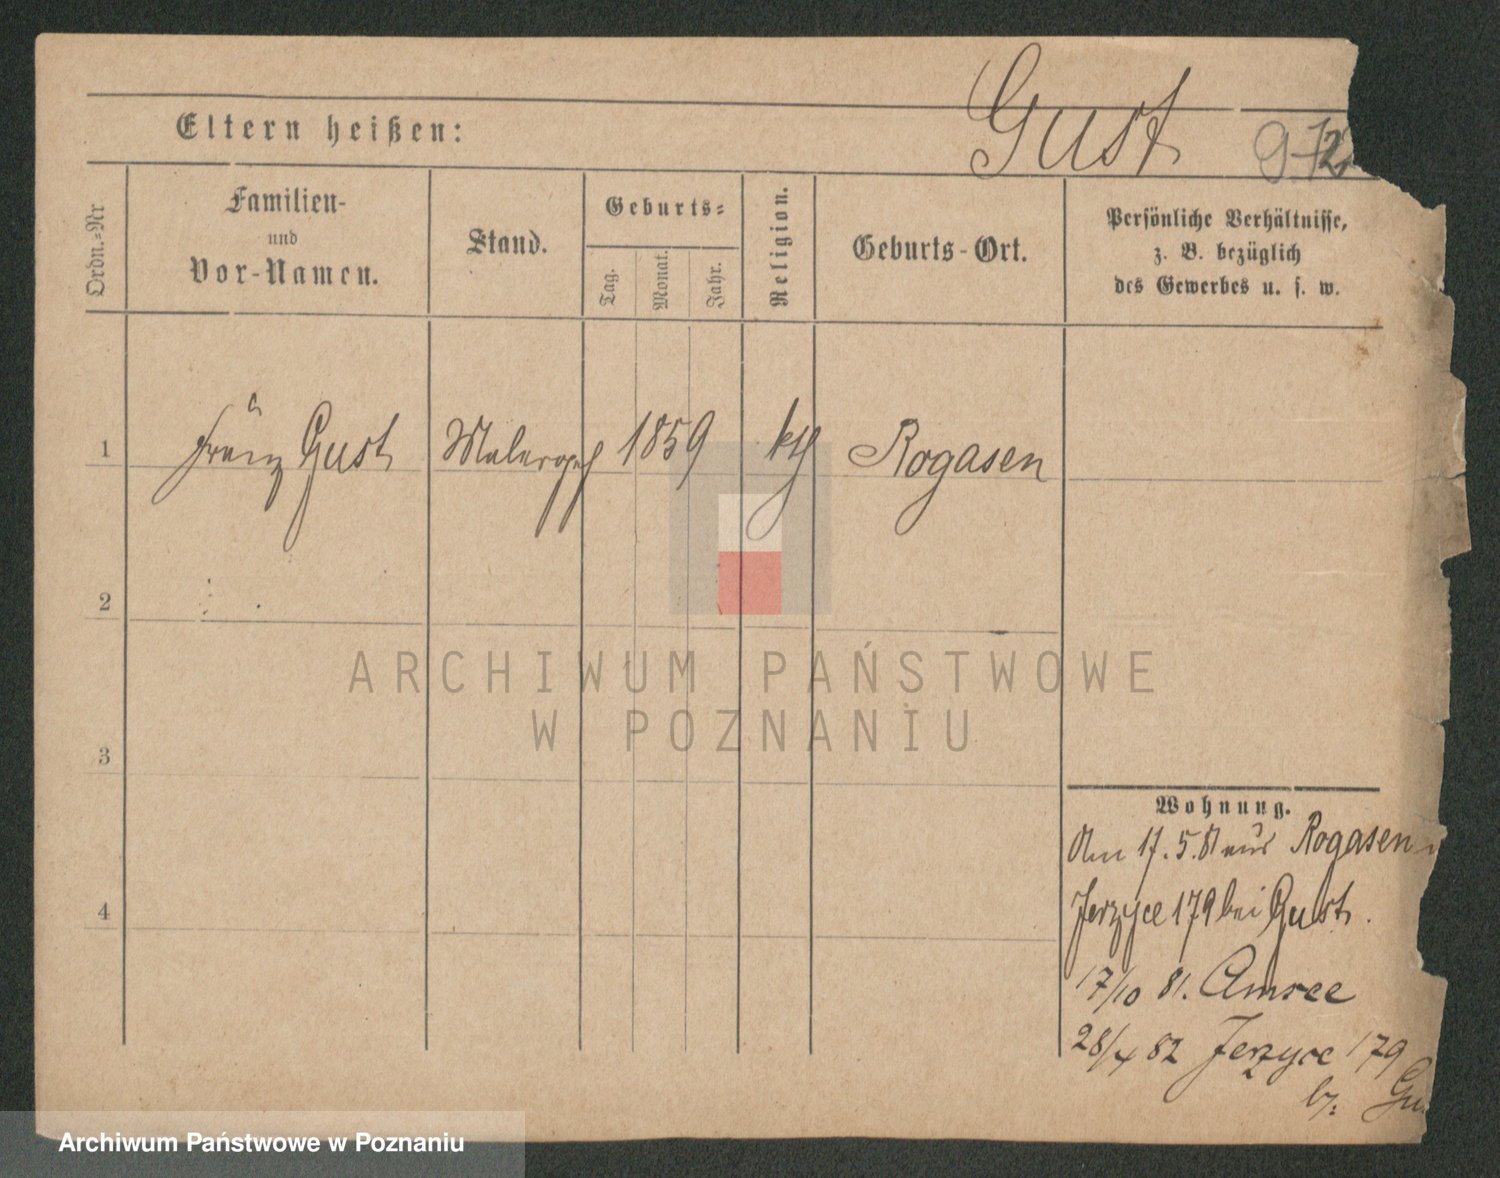 Gust
Eltern heißen:
Ordn.=Nr
Familien-
und
Vor-Namen.
Stand.
Geburts=
Tag.
Monat.
Jahr.
Religion.
Geburts-Ort.
Persönliche Verhältnisse,
z. B. bezüglich
des Gewerbes u. s. w.
1 Franz Gust 1859 kth Rogasen
2
ARCHIWUM PAŃSTWOWE
W POZNANIU
3
Wohnung.
Am 17.5.81 aus Rogasen
4
Jerzyce 179 bei Gust.
17/10 81. Amsee
28/4 82 Jerzyce 179
b:
Archiwum Państwowe w Poznaniu